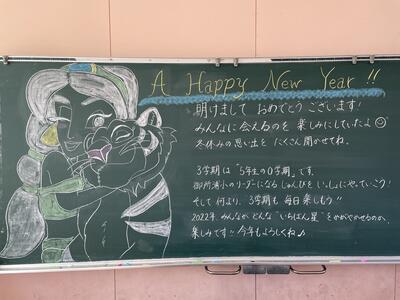 A Happy New Year !!
明けまして おめでとう ございます!
みんなに 会えるのを 楽しみにしていたよ
冬休みの思い出を たくさん聞かせてね。
3学期は「5年生の0学期」です。
御所浦小のリーダーになる じゅんびを いっしょにやっていこう!
そして 何より、3学期も 毎日 楽しもう!!
2022年、みんなが どんな“いちばん星”を かがやかせるのか、
楽しみです!! 今年もよろしくね♪